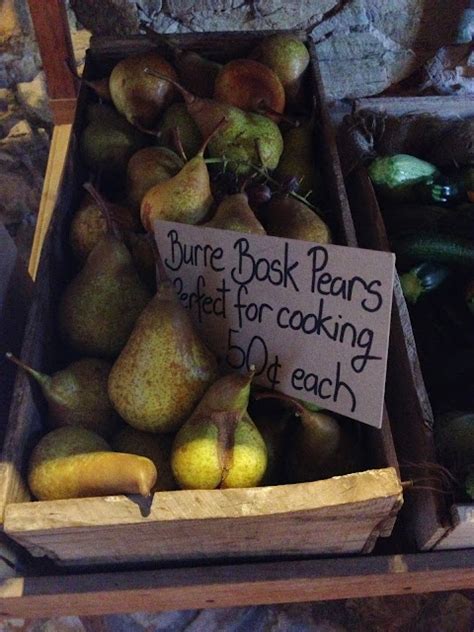 Burre Bosk Pears
Perfect for cooking
.50¢ each